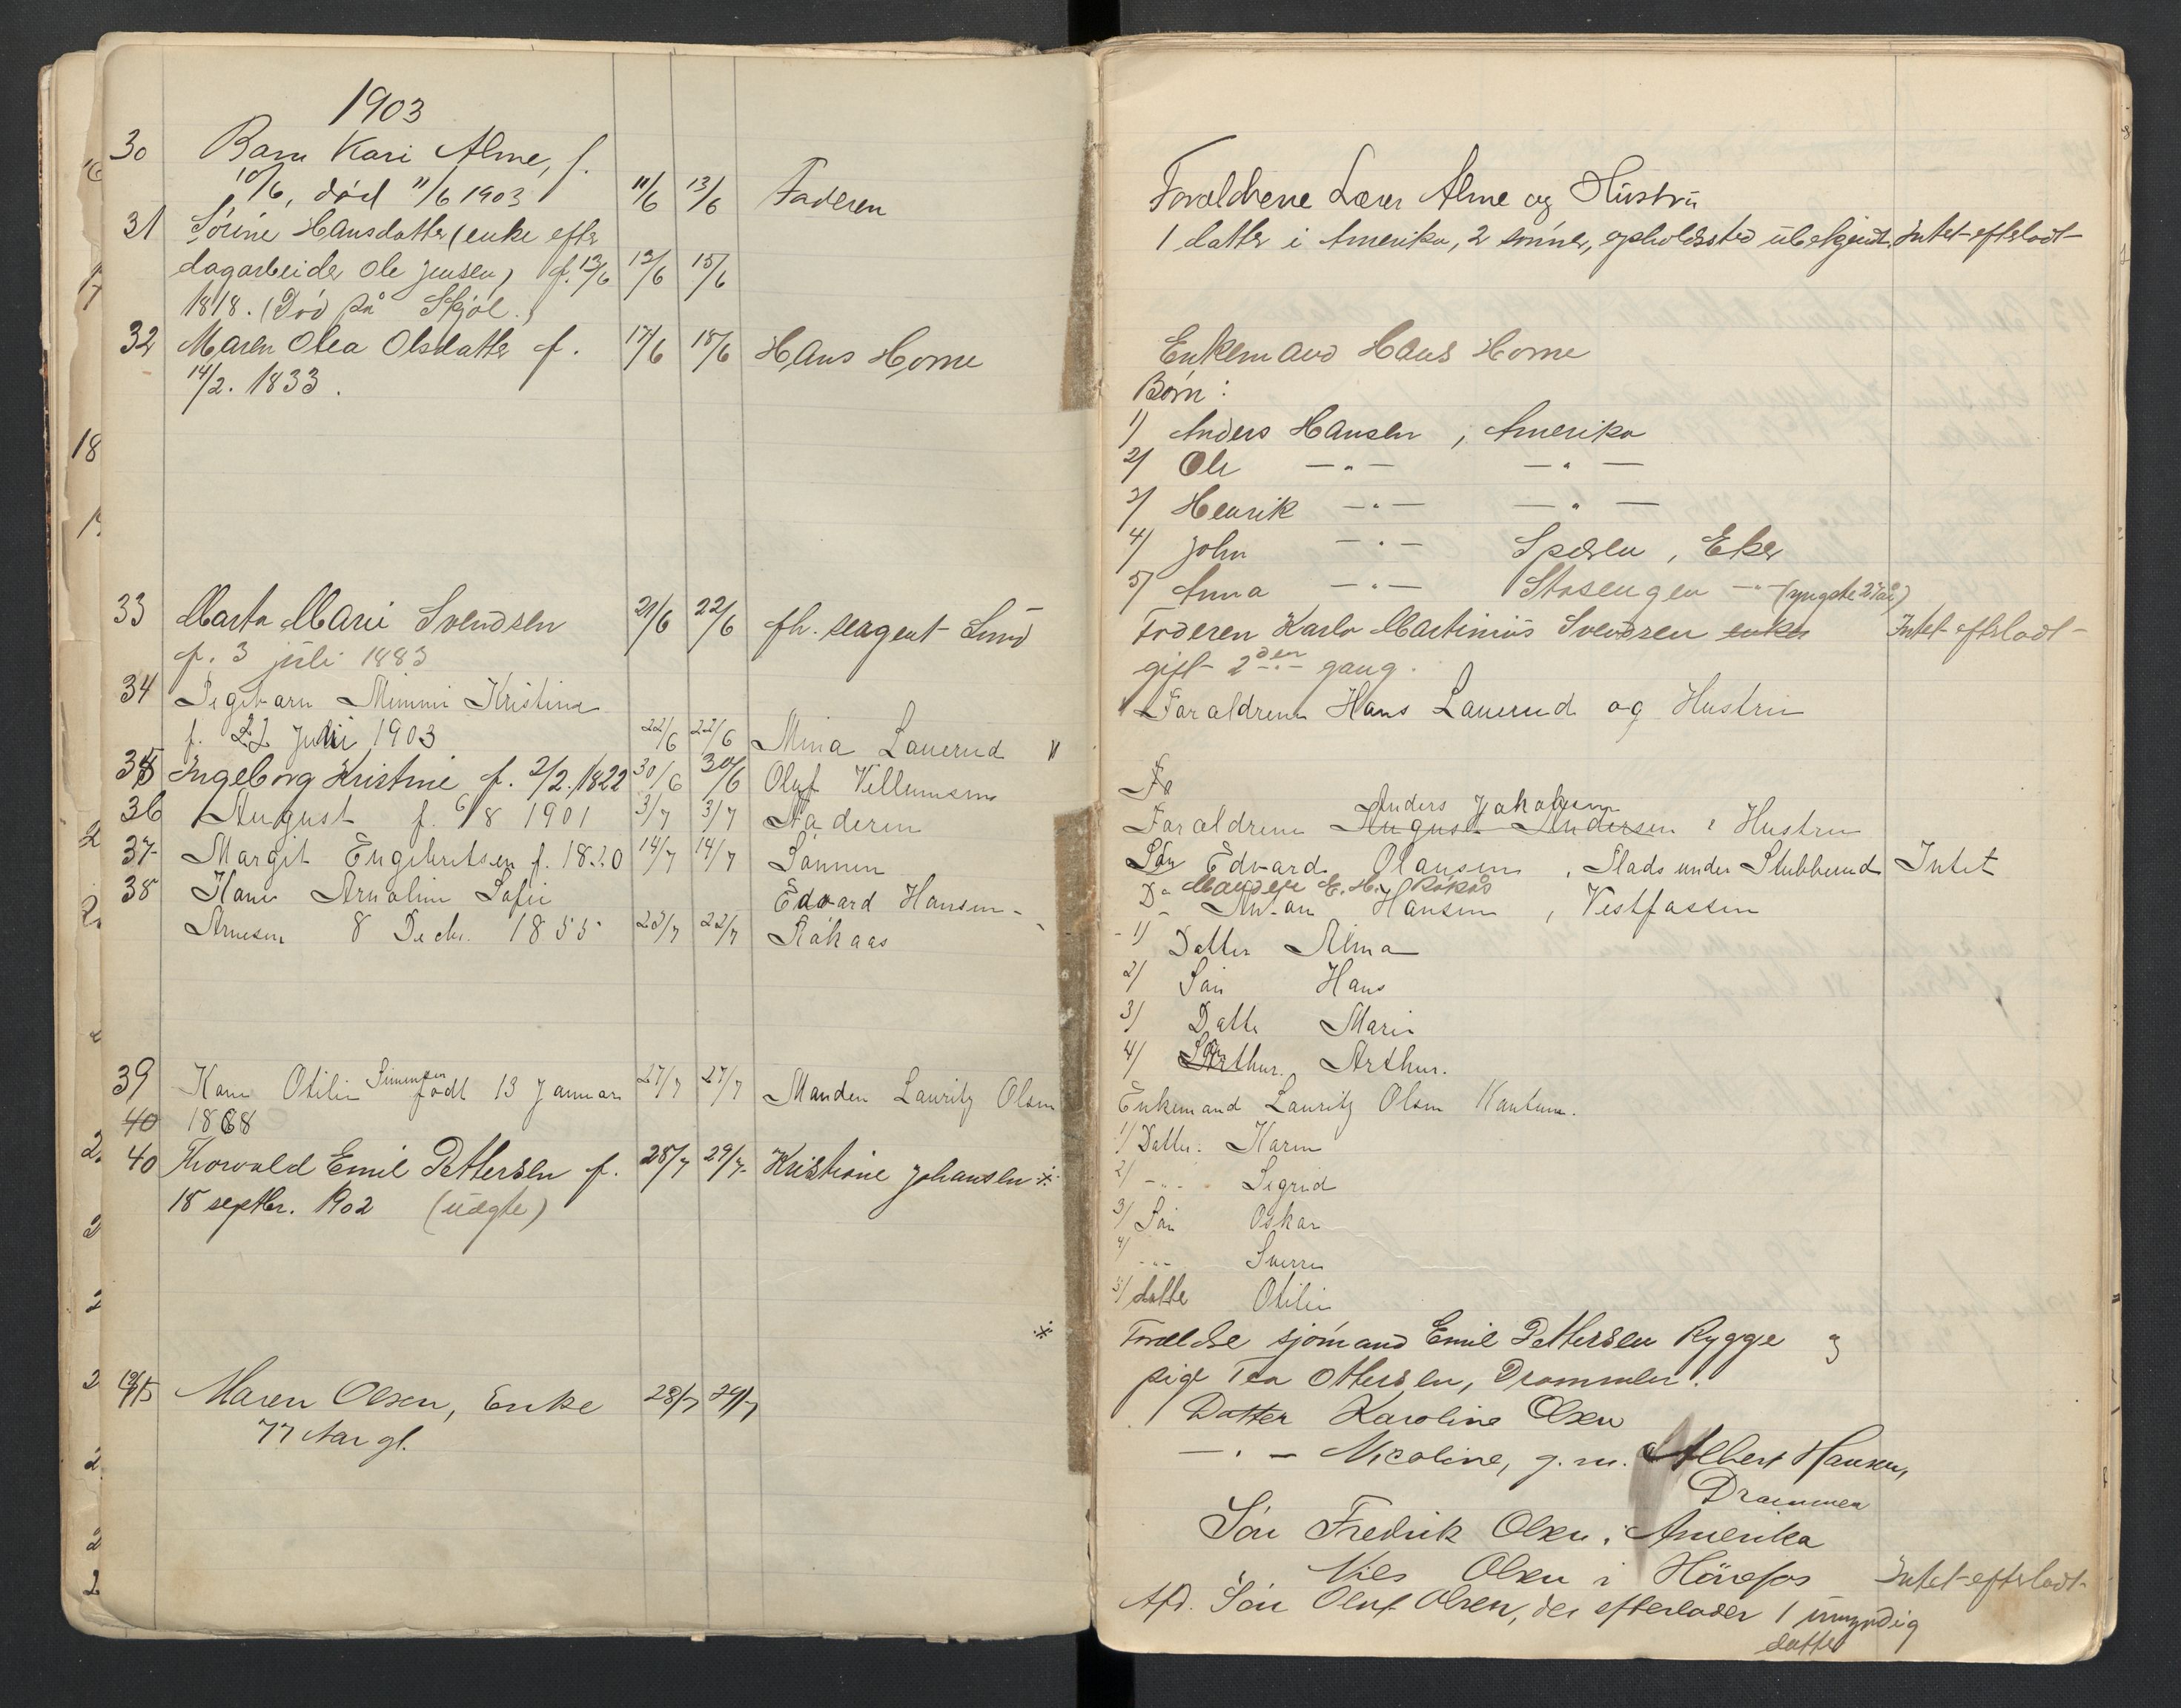 1903
30 Barn Kari Alme, f.
10/6, död 11/6 1903 11/6 13/6 Faderen
31 Sörine Hansdatter (enke efter
dagarbeider Ole Jensen) f. 13/6 13/6 15/6
1818. (Död på Skjöl.)
32 Maren Olea Olsdatter f. 17/6 18/6 Hans Horne
14/2. 1833.
33 Marta Marie Svendsen 21/6 22/6 fh. sergent Lund
f. 3 juli 1883
34 Pigebarn Mimmi Kristine
f. 22 Juni 1903 22/6 22/6 Mina Lauerud "
35 Ingeborg Kristine f. 2/2. 1822 30/6 30/6 Oluf Villumsen
36 August f. 6/8 1901 3/7 3/7 Faderen
37 Margit Engebretsen f. 1820 14/7 14/7 Sönnen
38 Karen Arnoline Sofie Edvard Hansen
Arnesen 8 Decbr. 1855 22/7 22/7 Råkaas
39 Karen Otilie Simensen födt 13 Januar 27/7 27/7 Manden Lauritz Olsen
40 1868
40 Thorvald Emil Pettersen f. 28/7 29/7 Kristine Johansen ※
18 septbr. 1902 (uægte)
※
Maren Olsen, Enke 28/7 29/7
77 Aar gl.
Forældrene Lærer Alme og Hustru
1 datter i Amerika, 2 sönner, opholdssted ubekjendt. Intet efterladt
Enkemand Hans Horne
Börn:
1) Anders Hansen, Amerika
2) Ole —"— —"—
3) Henrik —"— —"—
4) John —"— , Eker
5) Anna —"— Stasengen —"— (yngste 27 år)
Faderen Karl Martinius Svendsen enke Intet efterladt
gift 2den gang.
Foraldrene Hans Lauerud og Hustru
Fo
Anders Jakobsen
Foraldrene August Andersen & Hustru
Sön Edvard Olausen, Plads under Stubberud Intet
Manden E. H. Råkås
Do Anton Hansen, Vestfossen
1) Datter Alma
2) Sön Hans
3) Datter Marie
4) Sön Arthur. Arthur.
Enkemand Lauritz Olsen
1) Datter. Karen
2) —"— Sigrid
3) Sön Oskar
4) —"— Sverre
5) datter Otilie
Forældre sjömand Emil Pettersen Rygge og
pige Tea Ottersen, Drammen.
Datter Karoline Olsen
—"— Nicoline, g. m. Albert Hansen,
Drammen
Sön Fredrik Olsen i Amerika
Nils Olsen i Hönefos Intet efterladt
Afd. Sön Oluf Olsen, der efterlader 1 umyndig
datter